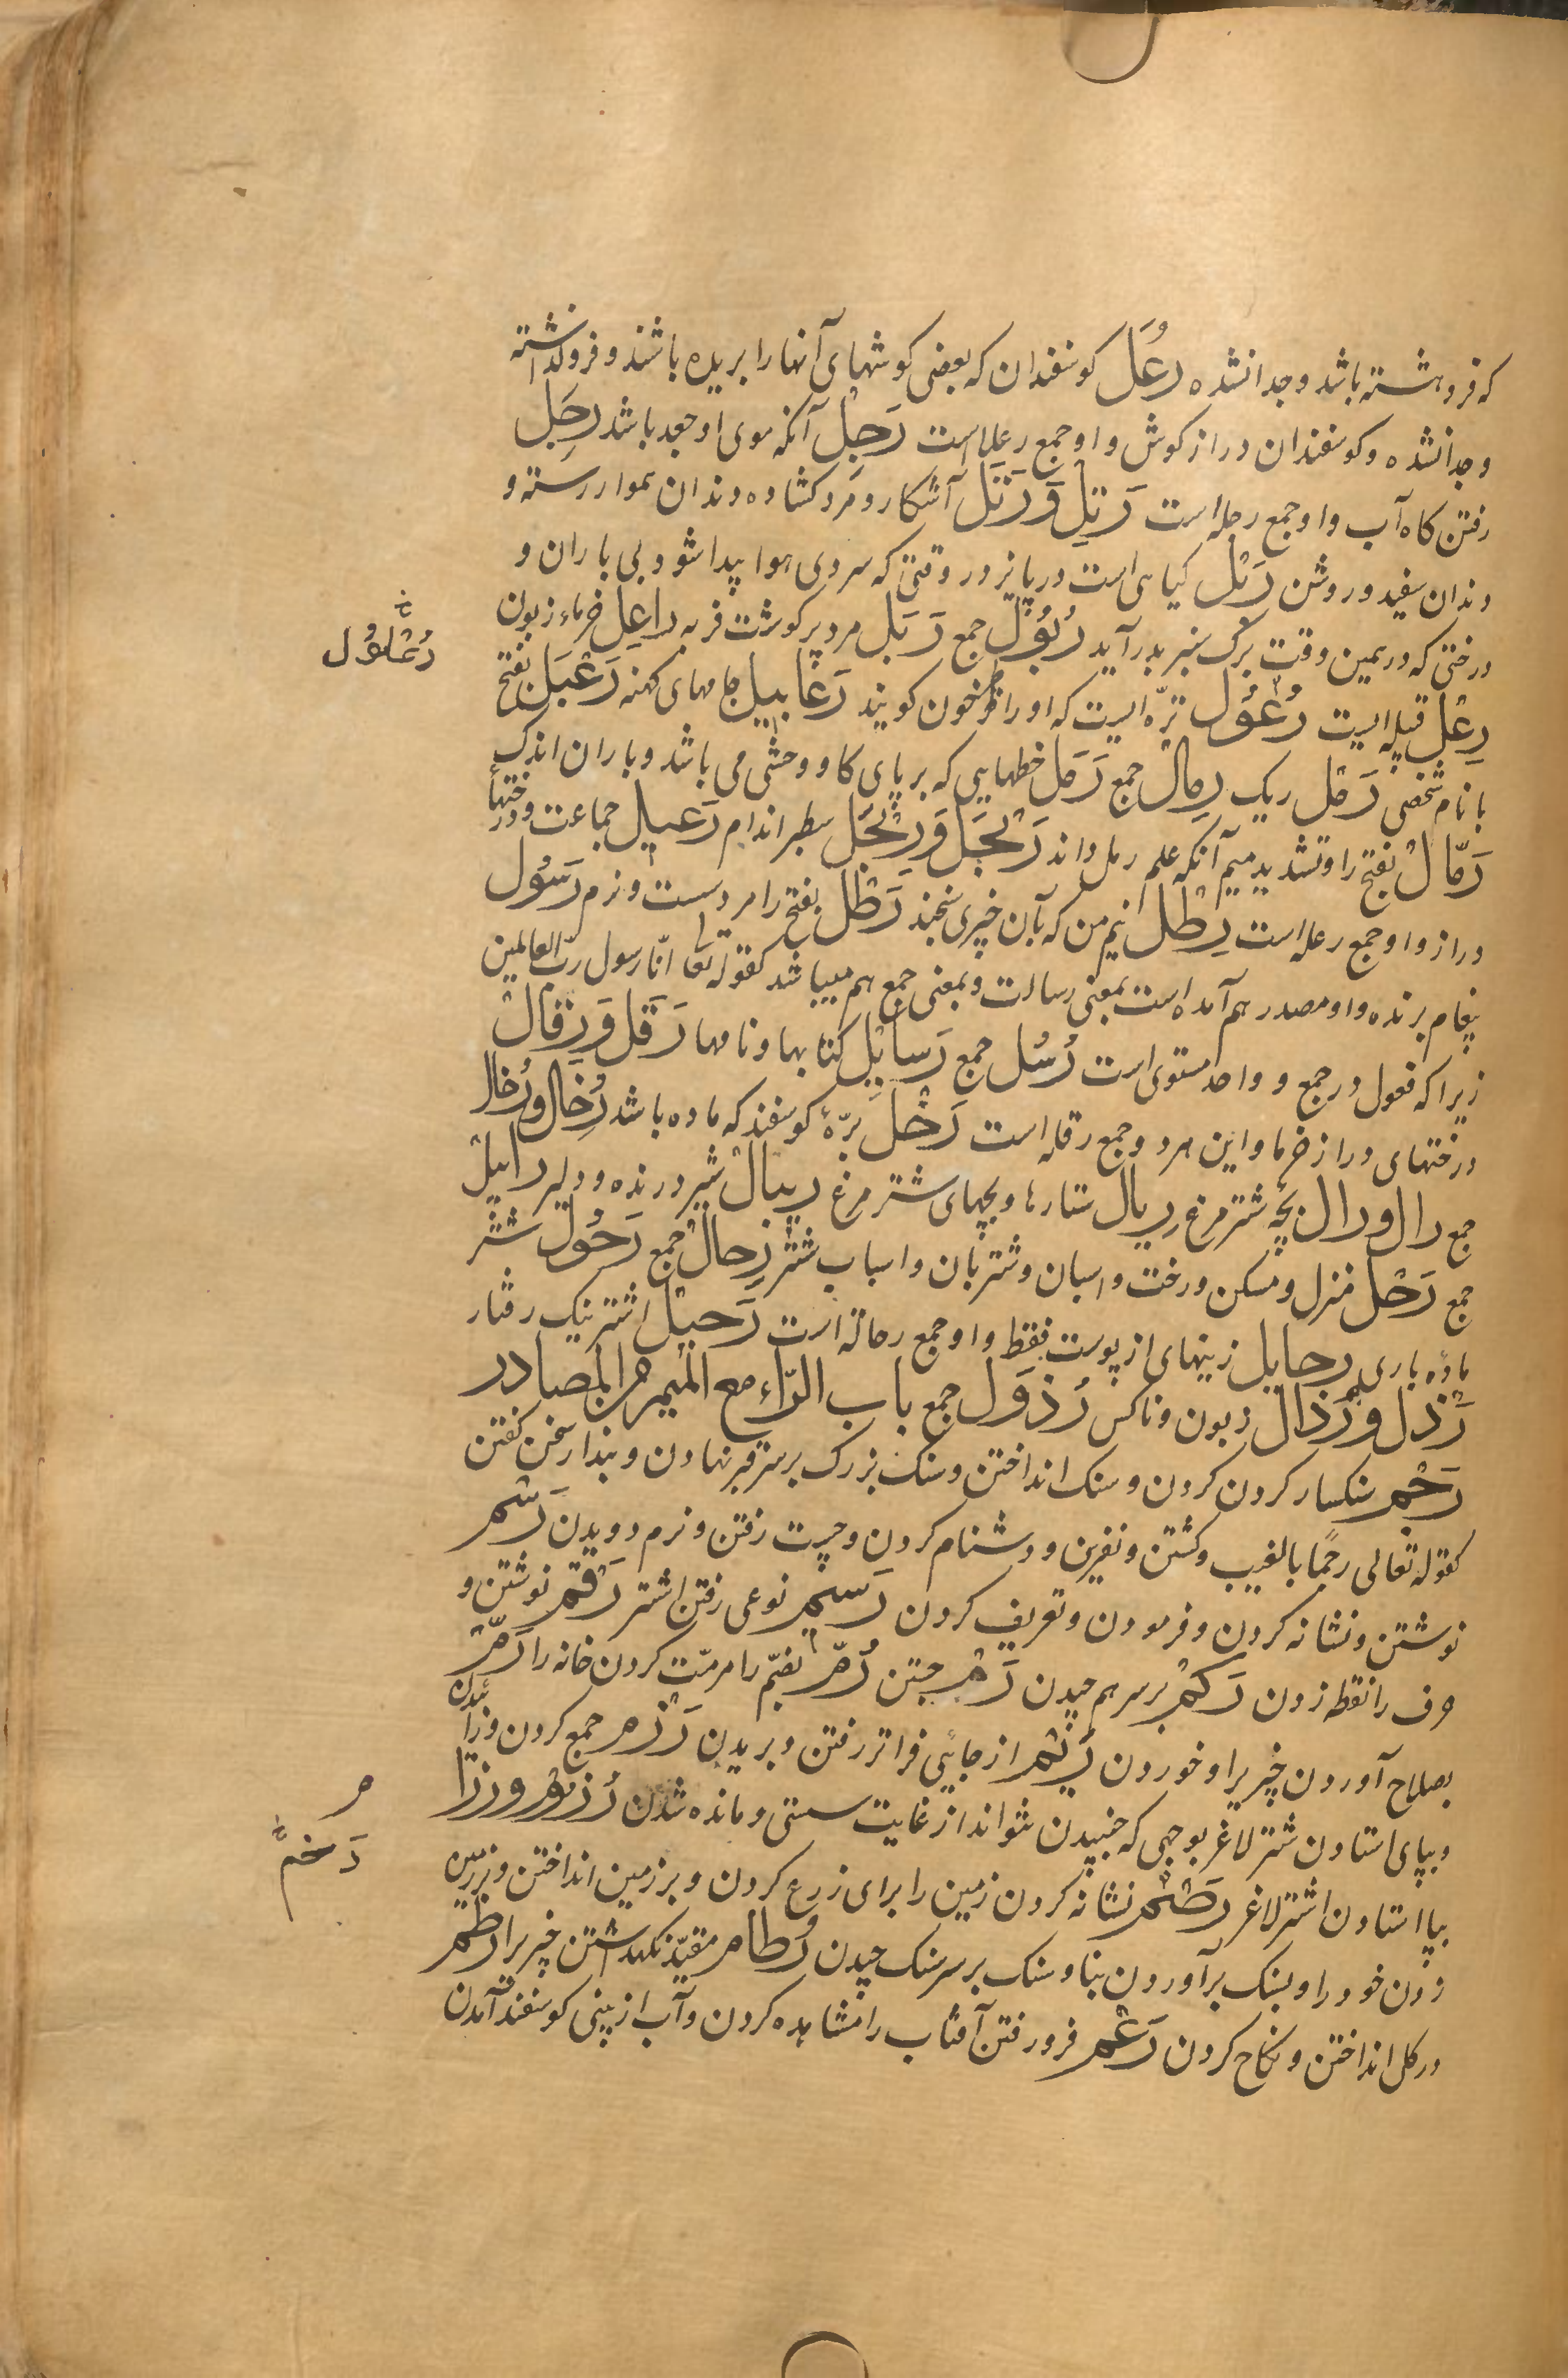 که فروهشته باشد و جدا نشده رُعَل کوسفندان که بعضی کوشهای آنها را بریده باشند و فروکذاشته
و جدا نشده و کوسفندان دراز کوش و او جمع رعلا است رَجِل آنکه موی او جعد باشد رِجَل
رفتن کاه آب و او جمع رجله است رَتِل وَ رَتَل آشکار و مرد کشاده دندان هموار رسته و
دندان سفید و روشن رَبْل کیاهی است در پائیز در وقتی که سردی هوا پیدا شود بی باران و
درختی که در همین وقت برک سبز بدر آید رُبُوْل جمع رَبَل مرد پر کوشت فربه راعِل خرماء زبون
رِعْل قبیله ایست رُعْوُل ترّه ایست که او را طرخون کویند رَعَابیل جامهای کهنه رَعْبَل بفتح
با نام شخصی رَمْل ریک رِمال جمع رَمَل خطهایی که بر پای کاو وحشی می باشد و باران اندک
رَمّال بفتح را و تشدید میم آنکه علم رمل داند رَبْحَل وَ رِبَحْل سطبر اندام رَعیل جماعت و درختها
دراز و او جمع رعله است رِطْل نیم من که بآن چیزی سنجند رَطْل بفتح را مرد سست و نرم رَسُول
پیغام برنده و او مصدر هم آمده است بمعنی رسالت و بمعنی جمع هم میباشد کقوله تعا انّا رسول ربّ العالمین
زیرا که فعول در جمع و واحد مستوی است رُسُل جمع رَسایِل کتابها و نامها رَقْل وَ رِقال
درختهای دراز خرما و این هر دو جمع رقله است رَخْل برّهٔ کوسفند که ماده باشد رِخال و رُخال
جمع رال و رال بچّه شتر مرغ ریال ستارها و بچهای شتر مرغ ریبال شیر درنده و دلیر رابیل
جمع رَحْل منزل و مسکن و رخت و اسبان و شتربان و اسباب شتر رِحال جمع رَحُول شتر
ماده باری رحایل زینهای از پوست فقط و او جمع رحاله است رَحیل اشتر نیک رفتار
رَذل و رُذال زبون و ناکس رُذوَل جمع باب الرّاء مع المیم من المصادر
رَجْم سنکسار کردن کردن و سنک انداختن و سنک بزرک بر سر قبر نهادن و بپندار سخن کفتن
کقوله تعالی رجمًا بالغیب و کشتن و نفرین و دشنام کردن و چست رفتن و نرم دویدن رَسْم
نوشتن و نشانه کردن و فرمودن و تعریف کردن رَسیم نوعی رفتن اشتر رَقْم نوشتن و
حرف را نقطه زدن رَکْم بر سر هم چیدن رَمْ جستن رُمّ بضمّ را مرمّت کردن خانه را رَمّ
بصلاح آوردن چیزیرا و خوردن رَیْم از جائی فراتر رفتن و بریدن رَزْم جمع کردن و زائیدن
و بپای استادن شتر لاغر بوجهی که جنبیدن نتواند از غایت سستی و مانده شدن رُزوم و رزا
بپا استادن اشتر لاغر رَضْم نشانه کردن زمین را برای زرع کردن و بر زمین انداختن و بزمین
زدن خود را و بسنک برآوردن بنا و سنک بر سر سنک چیدن رُطام مقیّد نکهداشتن چیزیرا رطم
در کل انداختن و نکاح کردن رَعْم فرو رفتن آفتاب را مشاهده کردن و آب از بینی کوسفند آمدن
رُعْلوُل
م
رَخمَّ